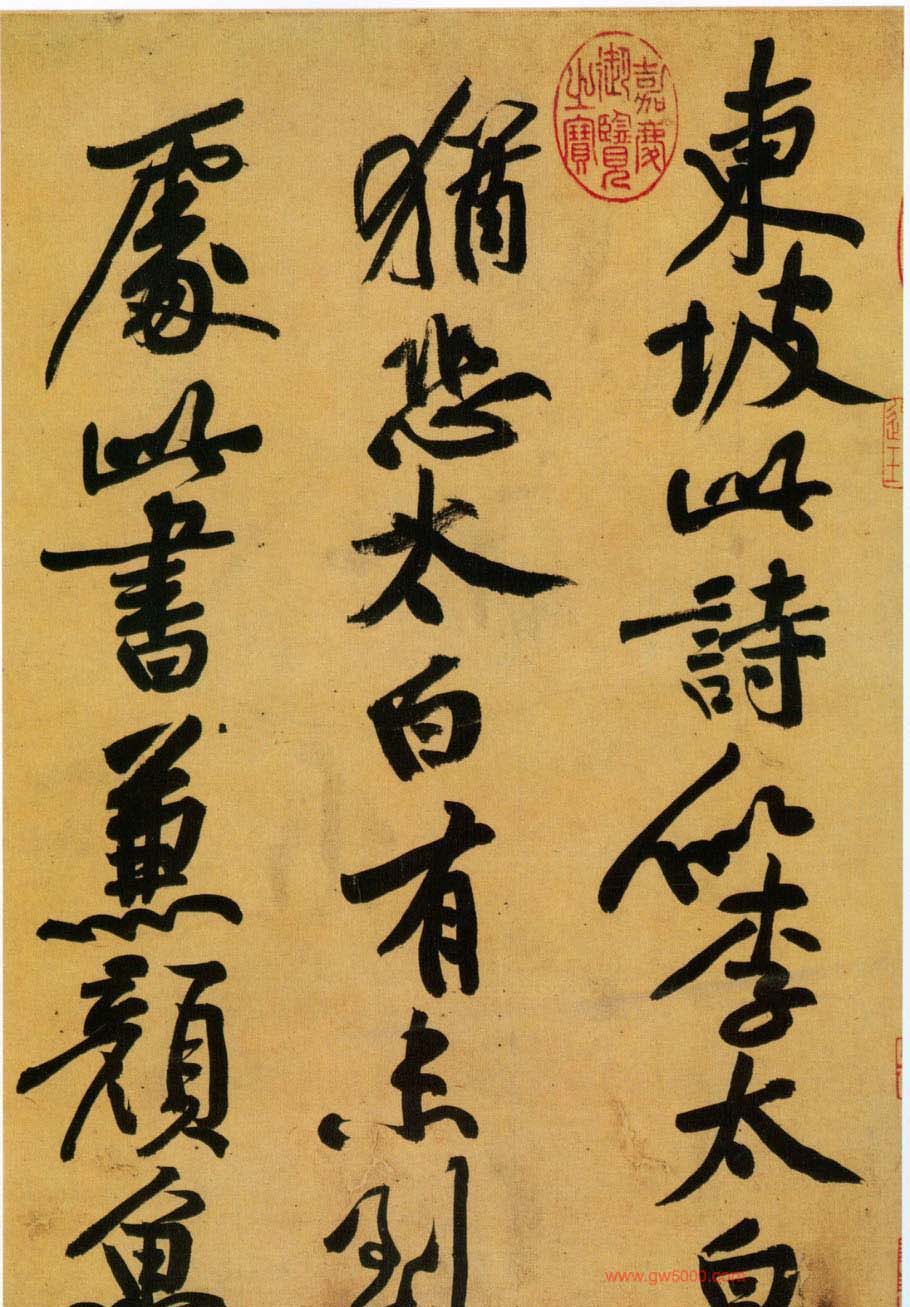 東坡此詩似李太白
猶恐太白有未到
處此書兼顏魯
嘉慶御覽之寶
www.gw5000.com